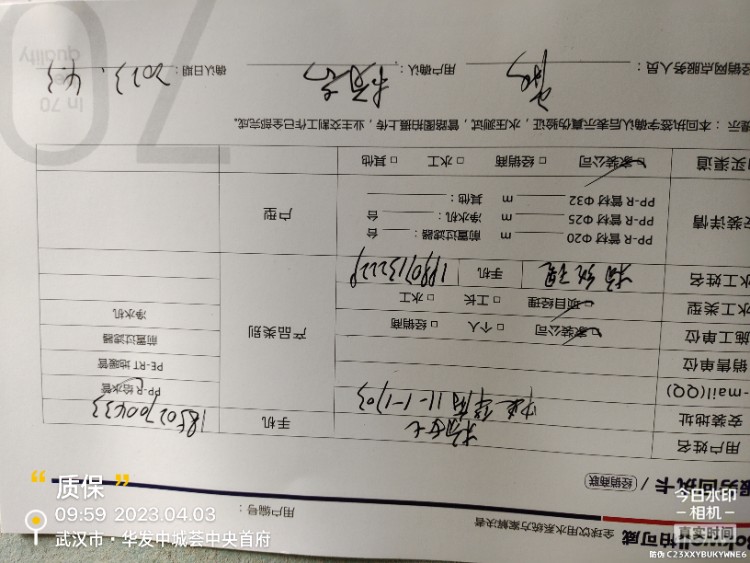 柏可威
全球饮用水系统方案解决者
用户编号：
服务回执卡 / 经销商联
用户姓名
手机
18502700433
安装地址
11-1-1703
PP-R给水管
-mail(QQ)
PE-RT 地暖管
销售单位
前置过滤器
施工单位
家装公司 □ 个人 □ 经销商
产品类别
净水机
水工类型
项目经理 □ 工长 □ 水工
水工姓名
手机
安装详情
PP-R 管材 Φ20 m 前置过滤器： 台
PP-R 管材 Φ25 m 净水机： 台
PP-R 管材 Φ32 m 其他：
户型
购买渠道
家装公司 □ 经销商 □ 水工 □ 其他
提示：本回执签字确认后表示真伪验证，水压测试，管路图拍摄上传，业主交割工作已全部完成。
经销网点服务人员：
用户确认：
确认日期：
2023. 4.3
In 70
quality
70
“ 质保 ”
09:59 2023.04.03
武汉市·华发中城荟中央首府
今日水印
-相机-
真实时间
防伪 C23XXYBUKYWNE6